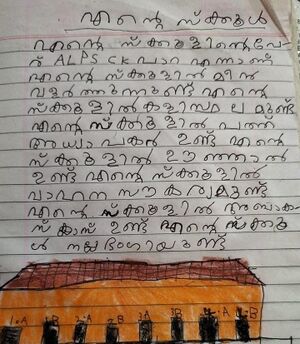 എന്റെ സ്ക്കൂൾ
എന്റെ സ്ക്കൂളിന്റെ പേ
ര് ALPS CK പാറ എന്നാണ്
എന്റെ സ്ക്കൂളിൽ മീൻ
വളർത്തുന്നുണ്ട് എന്റെ
സ്ക്കൂളിൽ കളിസ്ഥലമുണ്ട്
എന്റെ സ്ക്കൂളിൽ പത്ത്
അധ്യാപകർ ഉണ്ട് എന്റെ
സ്ക്കൂളിൽ ഊഞ്ഞാൽ
ഉണ്ട് എന്റെ സ്ക്കൂളിൽ
വാഹന സൗകര്യമുണ്ട്
എന്റെ സ്ക്കൂളിൽ
ഉണ്ട് എന്റെ സ്ക്കൂ
ൾ നല്ല ഭംഗിയുണ്ട്
1·A 1·B 2·A 2·B 3A 3B 4·A 4·B